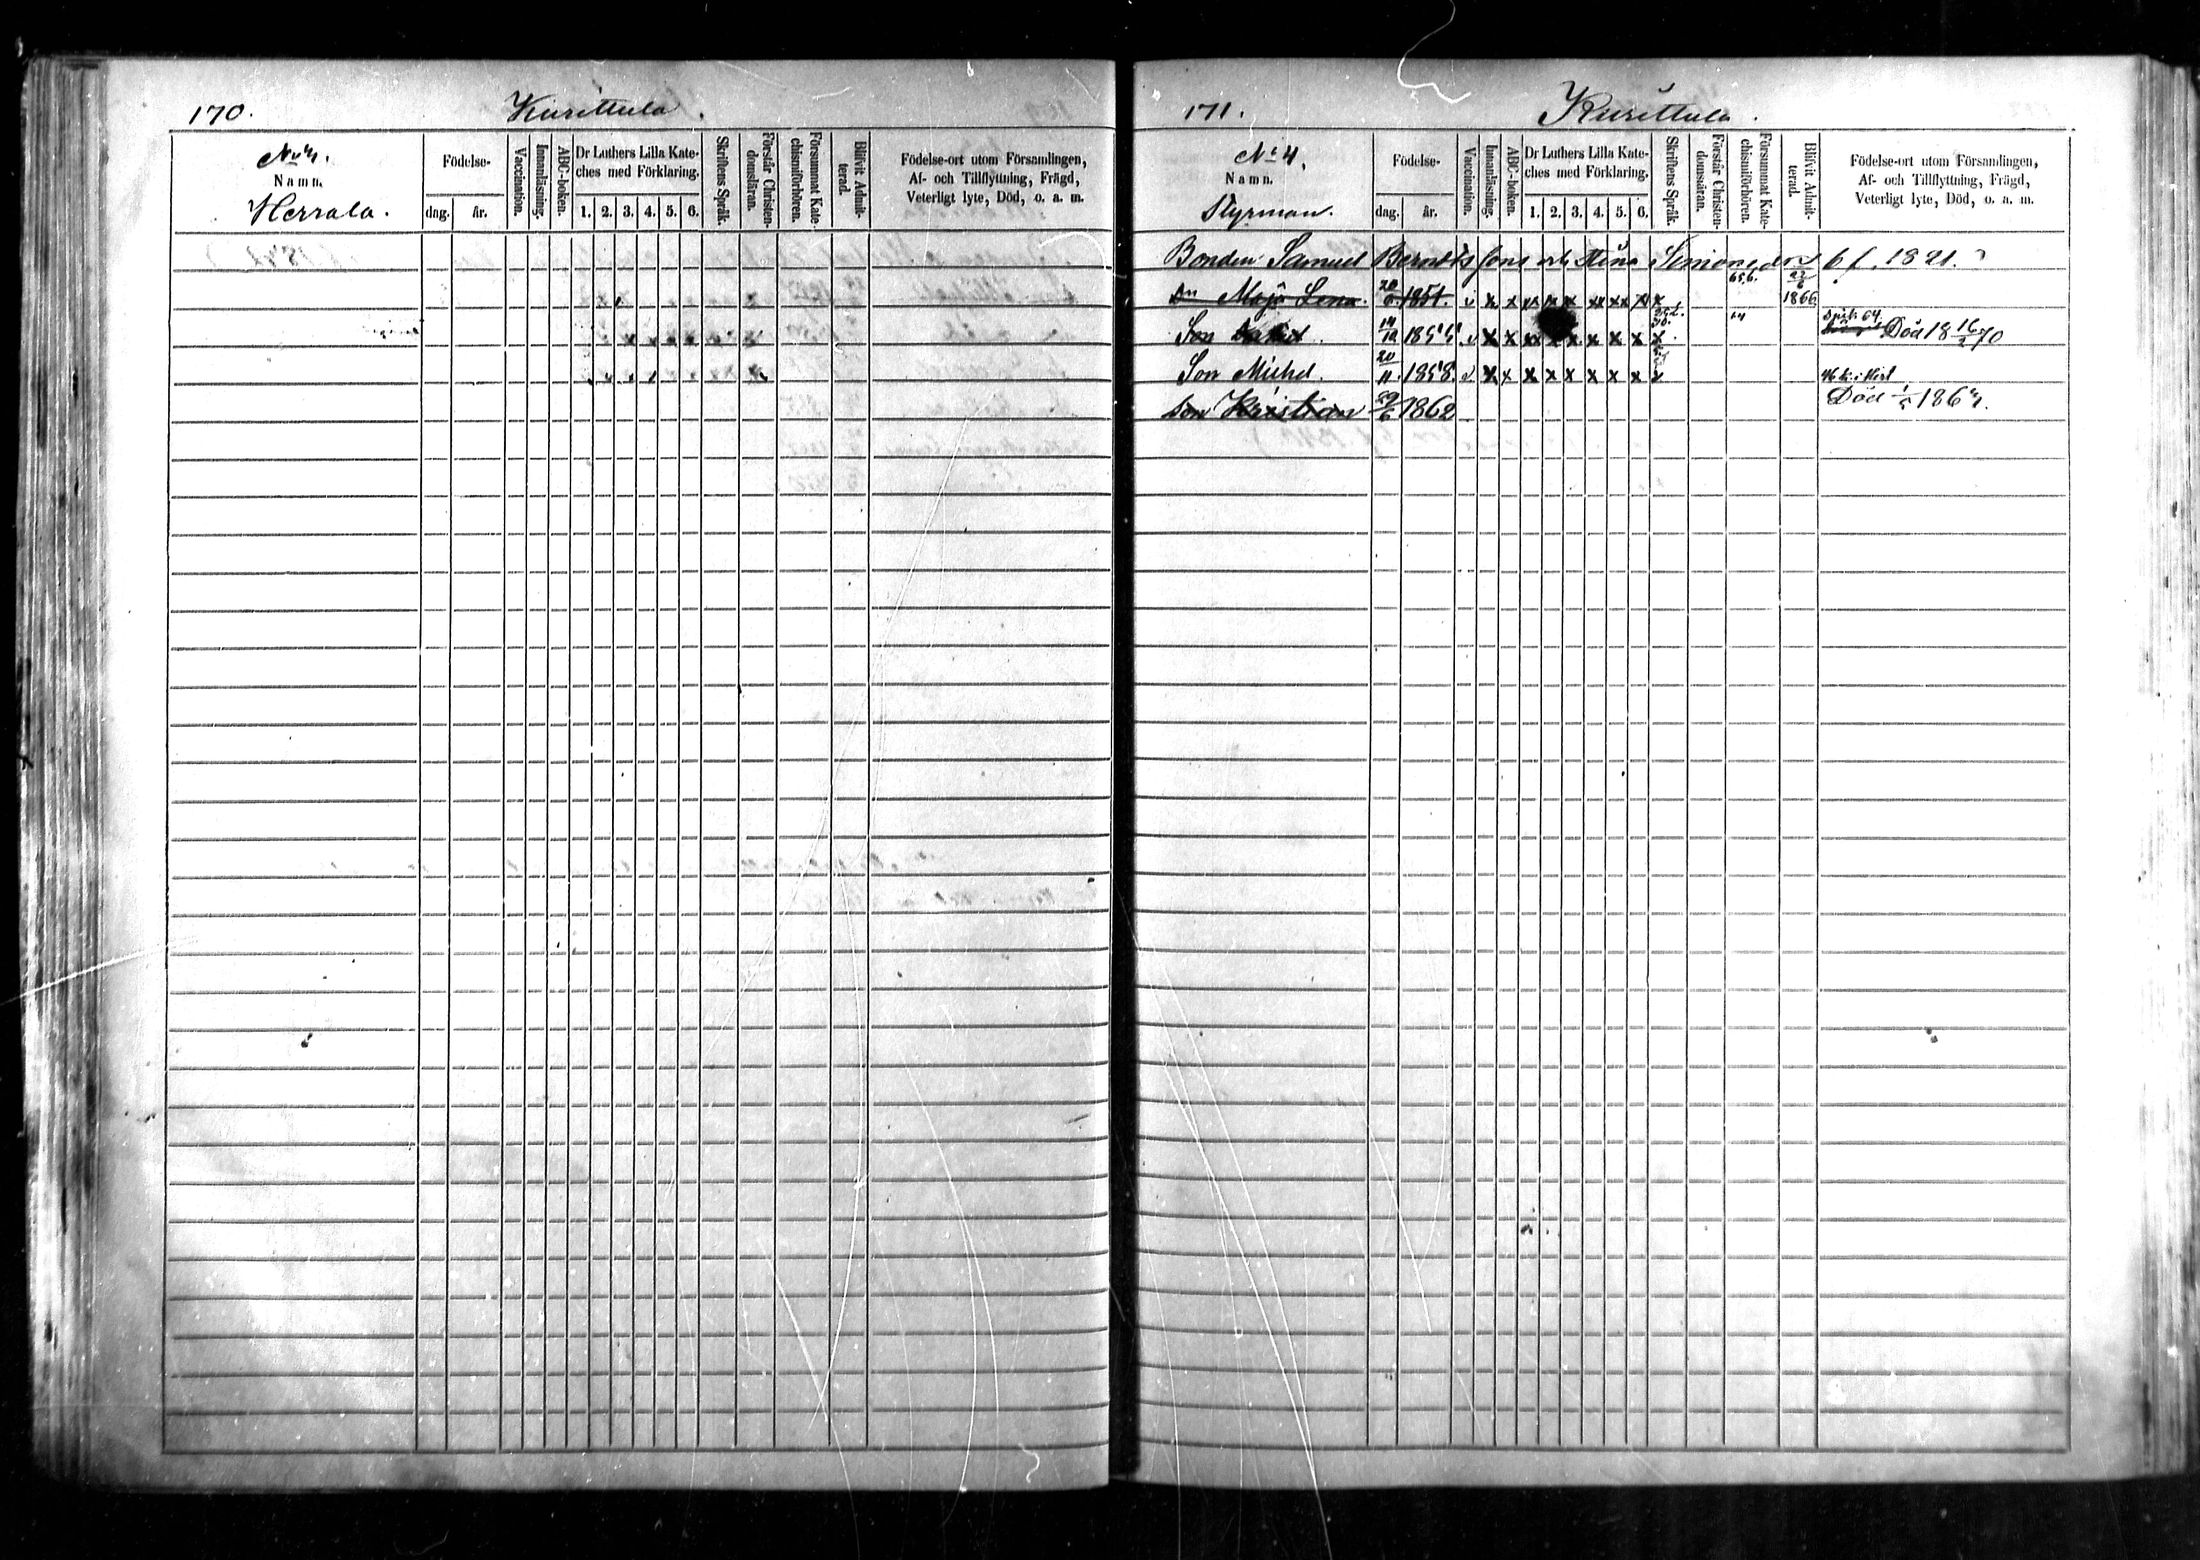 170. Kurittula.
Namn.
Herrala.
Födelse-
dag. år.
Vaccination.
Innanläsning.
ABC-boken.
Dr Luthers Lilla Kate-
ches med Förklaring.
1. 2. 3. 4. 5. 6.
Skriftens Språk.
Förstår Christen-
domsläran.
Försummat Kate-
chismiförhören.
Blifvit Admit-
terad.
Födelse-ort utom Församlingen,
Af- och Tillflyttning, Frägd,
Veterligt lyte, Död, o. a. m.
171. Kurittula.
No 4.
Namn.
Styrman.
Födelse-
dag. år.
Vaccination.
Innanläsning.
ABC-boken.
Dr Luthers Lilla Kate-
ches med Förklaring.
1. 2. 3. 4. 5. 6.
Skriftens Språk.
Förstår Christen-
domsäran.
Försummat Kate-
chismiförhören.
Blifvit Admit-
terad.
Födelse-ort utom Församlingen,
Af- och Tillflyttning, Frägd,
Veterligt lyte, Död, o. a. m.
Bonden Samuel Bernds Sons o Stina Simonsdr 6 f. 1821.
Dr Maja Lena. 1851. v x x x x x x x x x 65.6. 1866
Son 14/10 1855. v x x x x x x x x x 64 Död 18 16/2 70
Son Michel. 20/11. 1858. v x x x x x x x x
Son Kristian 1862 Död